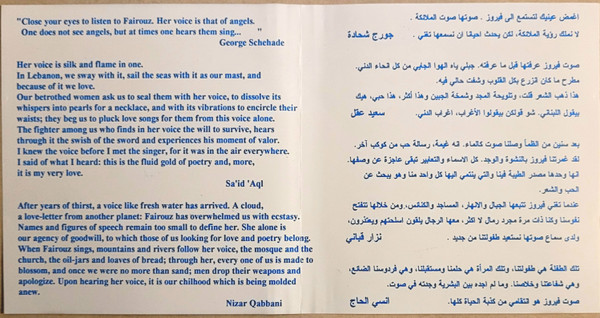 "Close your eyes to listen to Fairouz. Her voice is that of angels.
One does not see angels, but at times one hears them sing... "
George Schehade
Her voice is silk and flame in one.
In Lebanon, we sway with it, sail the seas with it as our mast, and
because of it we love.
Our betrothed women ask us to seal them with her voice, to dissolve its
whispers into pearls for a necklace, and with its vibrations to encircle their
waists; they beg us to pluck love songs for them from this voice alone.
The fighter among us who finds in her voice the will to survive, hears
through it the swish of the sword and experiences his moment of valor.
I knew the voice before I met the singer, for it was in the air everywhere.
I said of what I heard: this is the fluid gold of poetry and, more,
it is my very love.
Sa'id 'Aql
After years of thirst, a voice like fresh water has arrived. A cloud,
a love-letter from another planet: Fairouz has overwhelmed us with ecstasy.
Names and figures of speech remain too small to define her. She alone is
our agency of goodwill, to which those of us looking for love and poetry belong.
When Fairouz sings, mountains and rivers follow her voice, the mosque and the
church, the oil-jars and loaves of bread; through her, every one of us is made to
blossom, and once we were no more than sand; men drop their weapons and
apologize. Upon hearing her voice, it is our chilhood which is being molded
anew.
Nizar Qabbani
اغمض عينيك لتستمع الى فيروز . صوتها صوت الملائكة .
لا نملك رؤية الملائكة، لكن يحدث احيانا ان نسمعها تغني . جورج شحادة
صوت فيروز عرفتها قبل ما عرفته. جبلي ياه الهوا الجايي من كل انحاء الدني.
مطرح ما كان انزرع بكل القلوب وشفت حالي فيه.
هذا ذهب الشعر قلت، وتلويحة المجد وشمخة الجبين وهذا أكثر، هذا حبي، هيك
بيقول اللبناني. شو لوكن بيقولوا الأغراب، اغرب الدني. سعيد عقل
بعد سنين من الظمأ وصلنا صوت كالماء. انه غيمة، رسالة حب من كوكب آخر.
لقد غمرتنا فيروز بالنشوة والوجد. كل الاسماء والتعابير تبقى عاجزة عن وصفها.
انها وحدها مصدر الطيبة فينا والتي ينتمي اليها كل واحد منا وهو يبحث عن
الحب والشعر.
عندما تغني فيروز تتبعها الجبال والانهار، المساجد والكنائس، ومن خلالها تتفتح
نفوسنا وكنا ذات مرة مجرد رمال لا اكثر، معها الرجال يلقون اسلحتهم ويعتذرون،
ولدى سماع صوتها نستعيد طفولتنا من جديد . نزار قباني
تلك الطفلة هي طفولتنا، وتلك المرأة هي حلمنا ومستقبلنا، وهي فردوسنا الضائع،
وهي شفاعتنا وخلاصنا. وما لم اجده بين البشرية وجدته في صوت.
صوت فيروز هو انتقامي من كذبة الحياة كلها. انسي الحاج